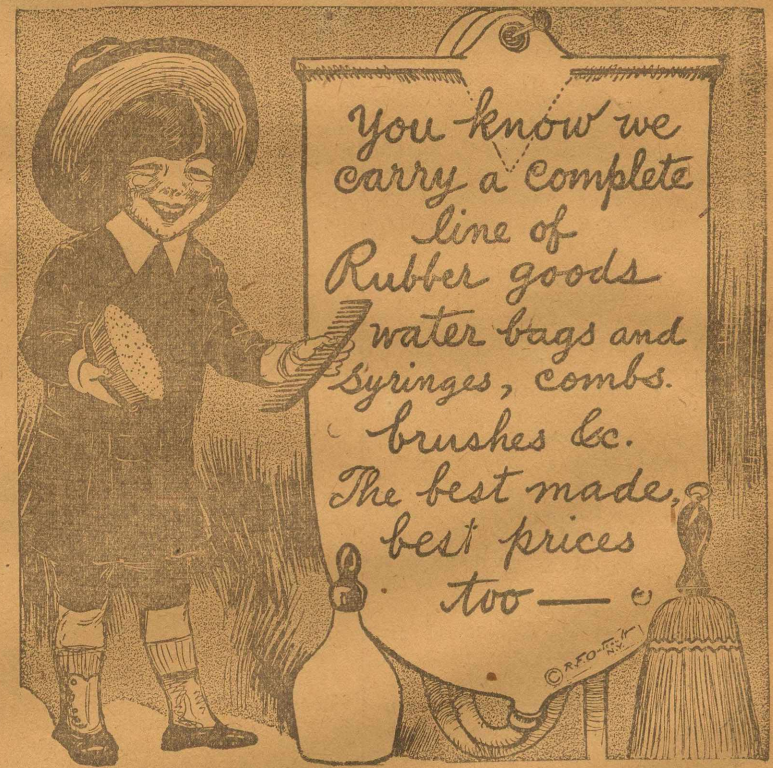 You know we
carry a complete
line of
Rubber goods
water bags and
syringes, combs.
brushes &c.
The best made,
best prices
too —
© R.F.O-
N.Y.